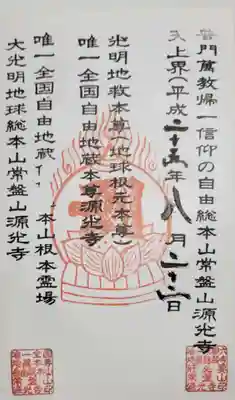 普門萬教帰一信仰の自由総本山常盤山源光寺
天上界(平成二十五年八月二十六日
光明地救本尊(地球根元本尊)
唯一全国自由地蔵本尊源光寺
唯一全国自由地蔵 一本山根本霊場
大光明地球総本山常盤山源光寺